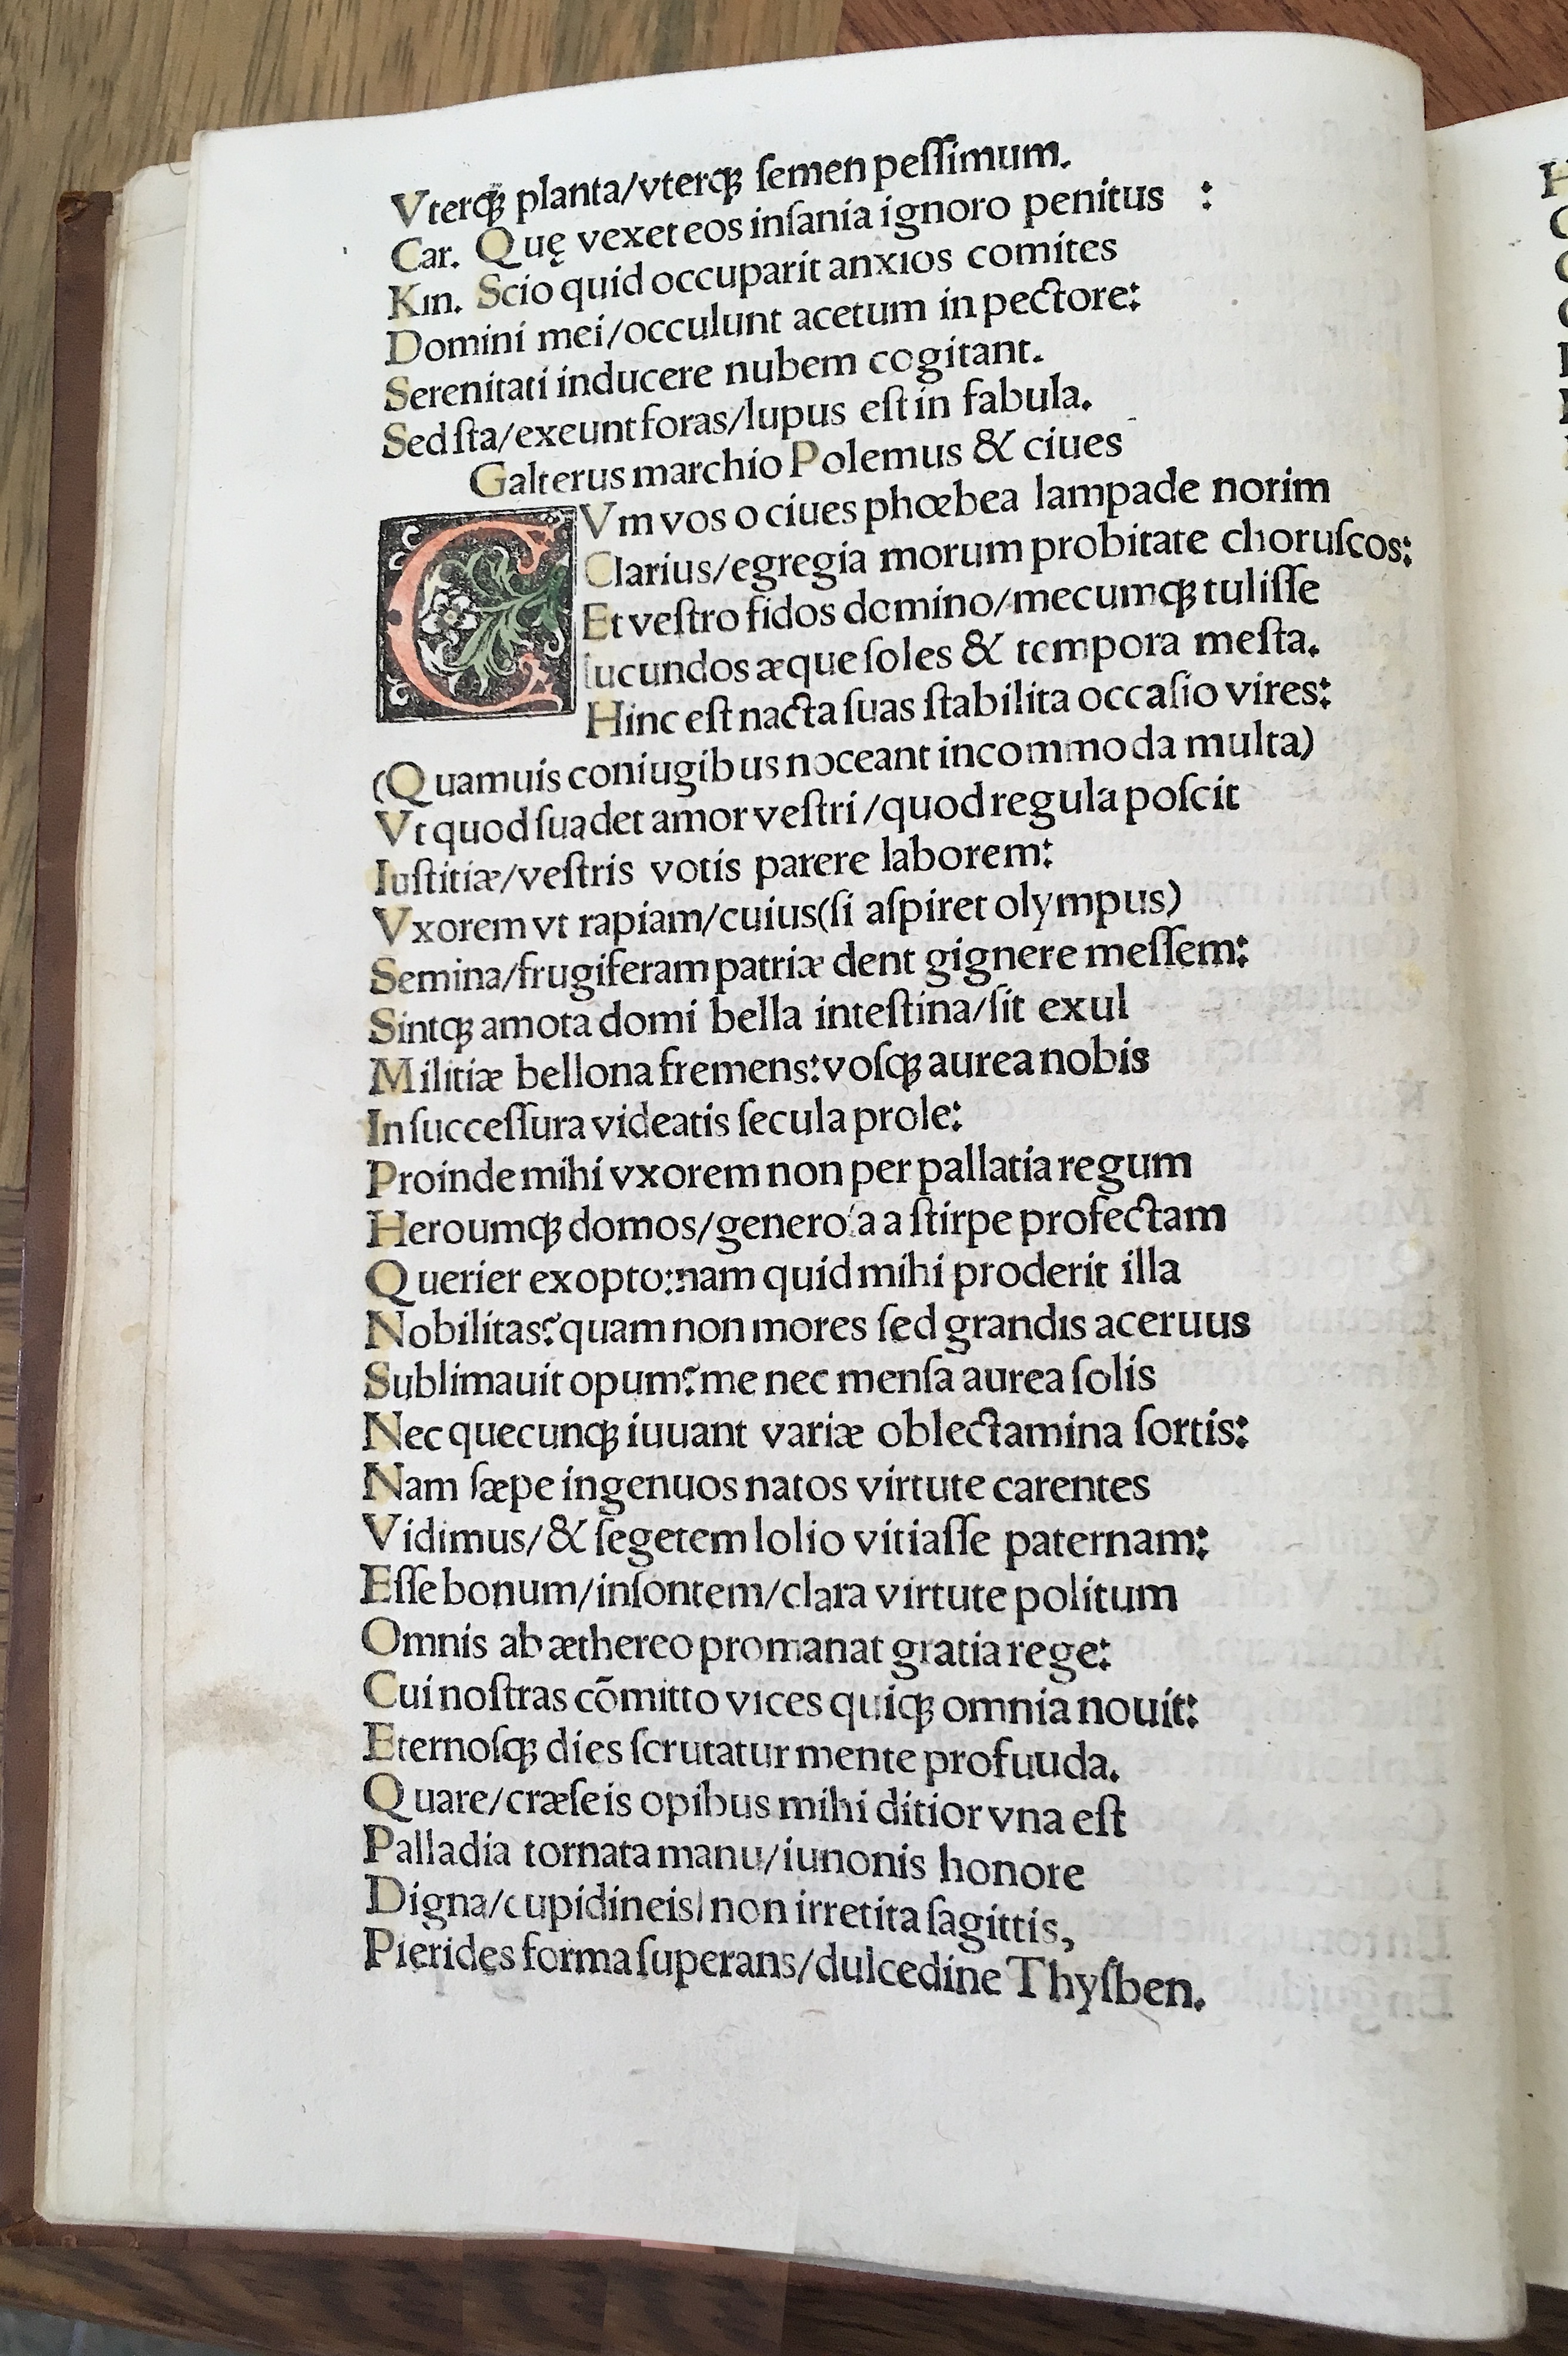 Vterqꝫ planta/vterqꝫ ſemen peſſimum.
Car. Quę vexet eos inſania ignoro penitus :
Kin. Scio quid occuparit anxios comites
Domini mei/occulunt acetum in pectore:
Serenitati inducere nubem cogitant.
Sed ſta/exeunt foras/lupus eſt in fabula.
Galterus marchio Polemus & ciues
CVm vos o ciues phœbea lampade norim
Clarius/egregia morum probitate choruſcos:
Et veſtro fidos domino/mecumqꝫ tuliſſe
Iucundos æque ſoles & tempora meſta.
Hinc eſt nacta ſuas ſtabilita occaſio vires:
(Quamuis coniugibus noceant incommoda multa)
Vt quod ſuadet amor veſtri/quod regula poſcit
Iuſtitiæ/veſtris votis parere laborem:
Vxorem vt rapiam/cuius(ſi aſpiret olympus)
Semina/frugiferam patriæ dent gignere meſſem:
Sintqꝫ amota domi bella inteſtina/ſit exul
Militiæ bellona fremens:voſqꝫ aurea nobis
In ſucceſſura videatis ſecula prole:
Proinde mihi vxorem non per pallatia regum
Heroumqꝫ domos/generoſa a ſtirpe profectam
Querier exopto:nam quid mihi proderit illa
Nobilitas?quam non mores ſed grandis aceruus
Sublimauit opum?me nec menſa aurea ſolis
Nec quecunqꝫ iuuant variæ oblectamina ſortis:
Nam ſæpe ingenuos natos virtute carentes
Vidimus/& ſegetem lolio vitiaſſe paternam:
Eſſe bonum/inſontem/clara virtute politum
Omnis ab æthereo promanat gratia rege:
Cui noſtras cōmitto vices quiqꝫ omnia nouit:
Eternoſqꝫ dies ſcrutatur mente profuuda.
Quare/cræſeis opibus mihi ditior vna eſt
Palladia tornata manu/iunonis honore
Digna/cupidineis non irretita ſagittis,
Pierides forma ſuperans/dulcedine Thyſben.